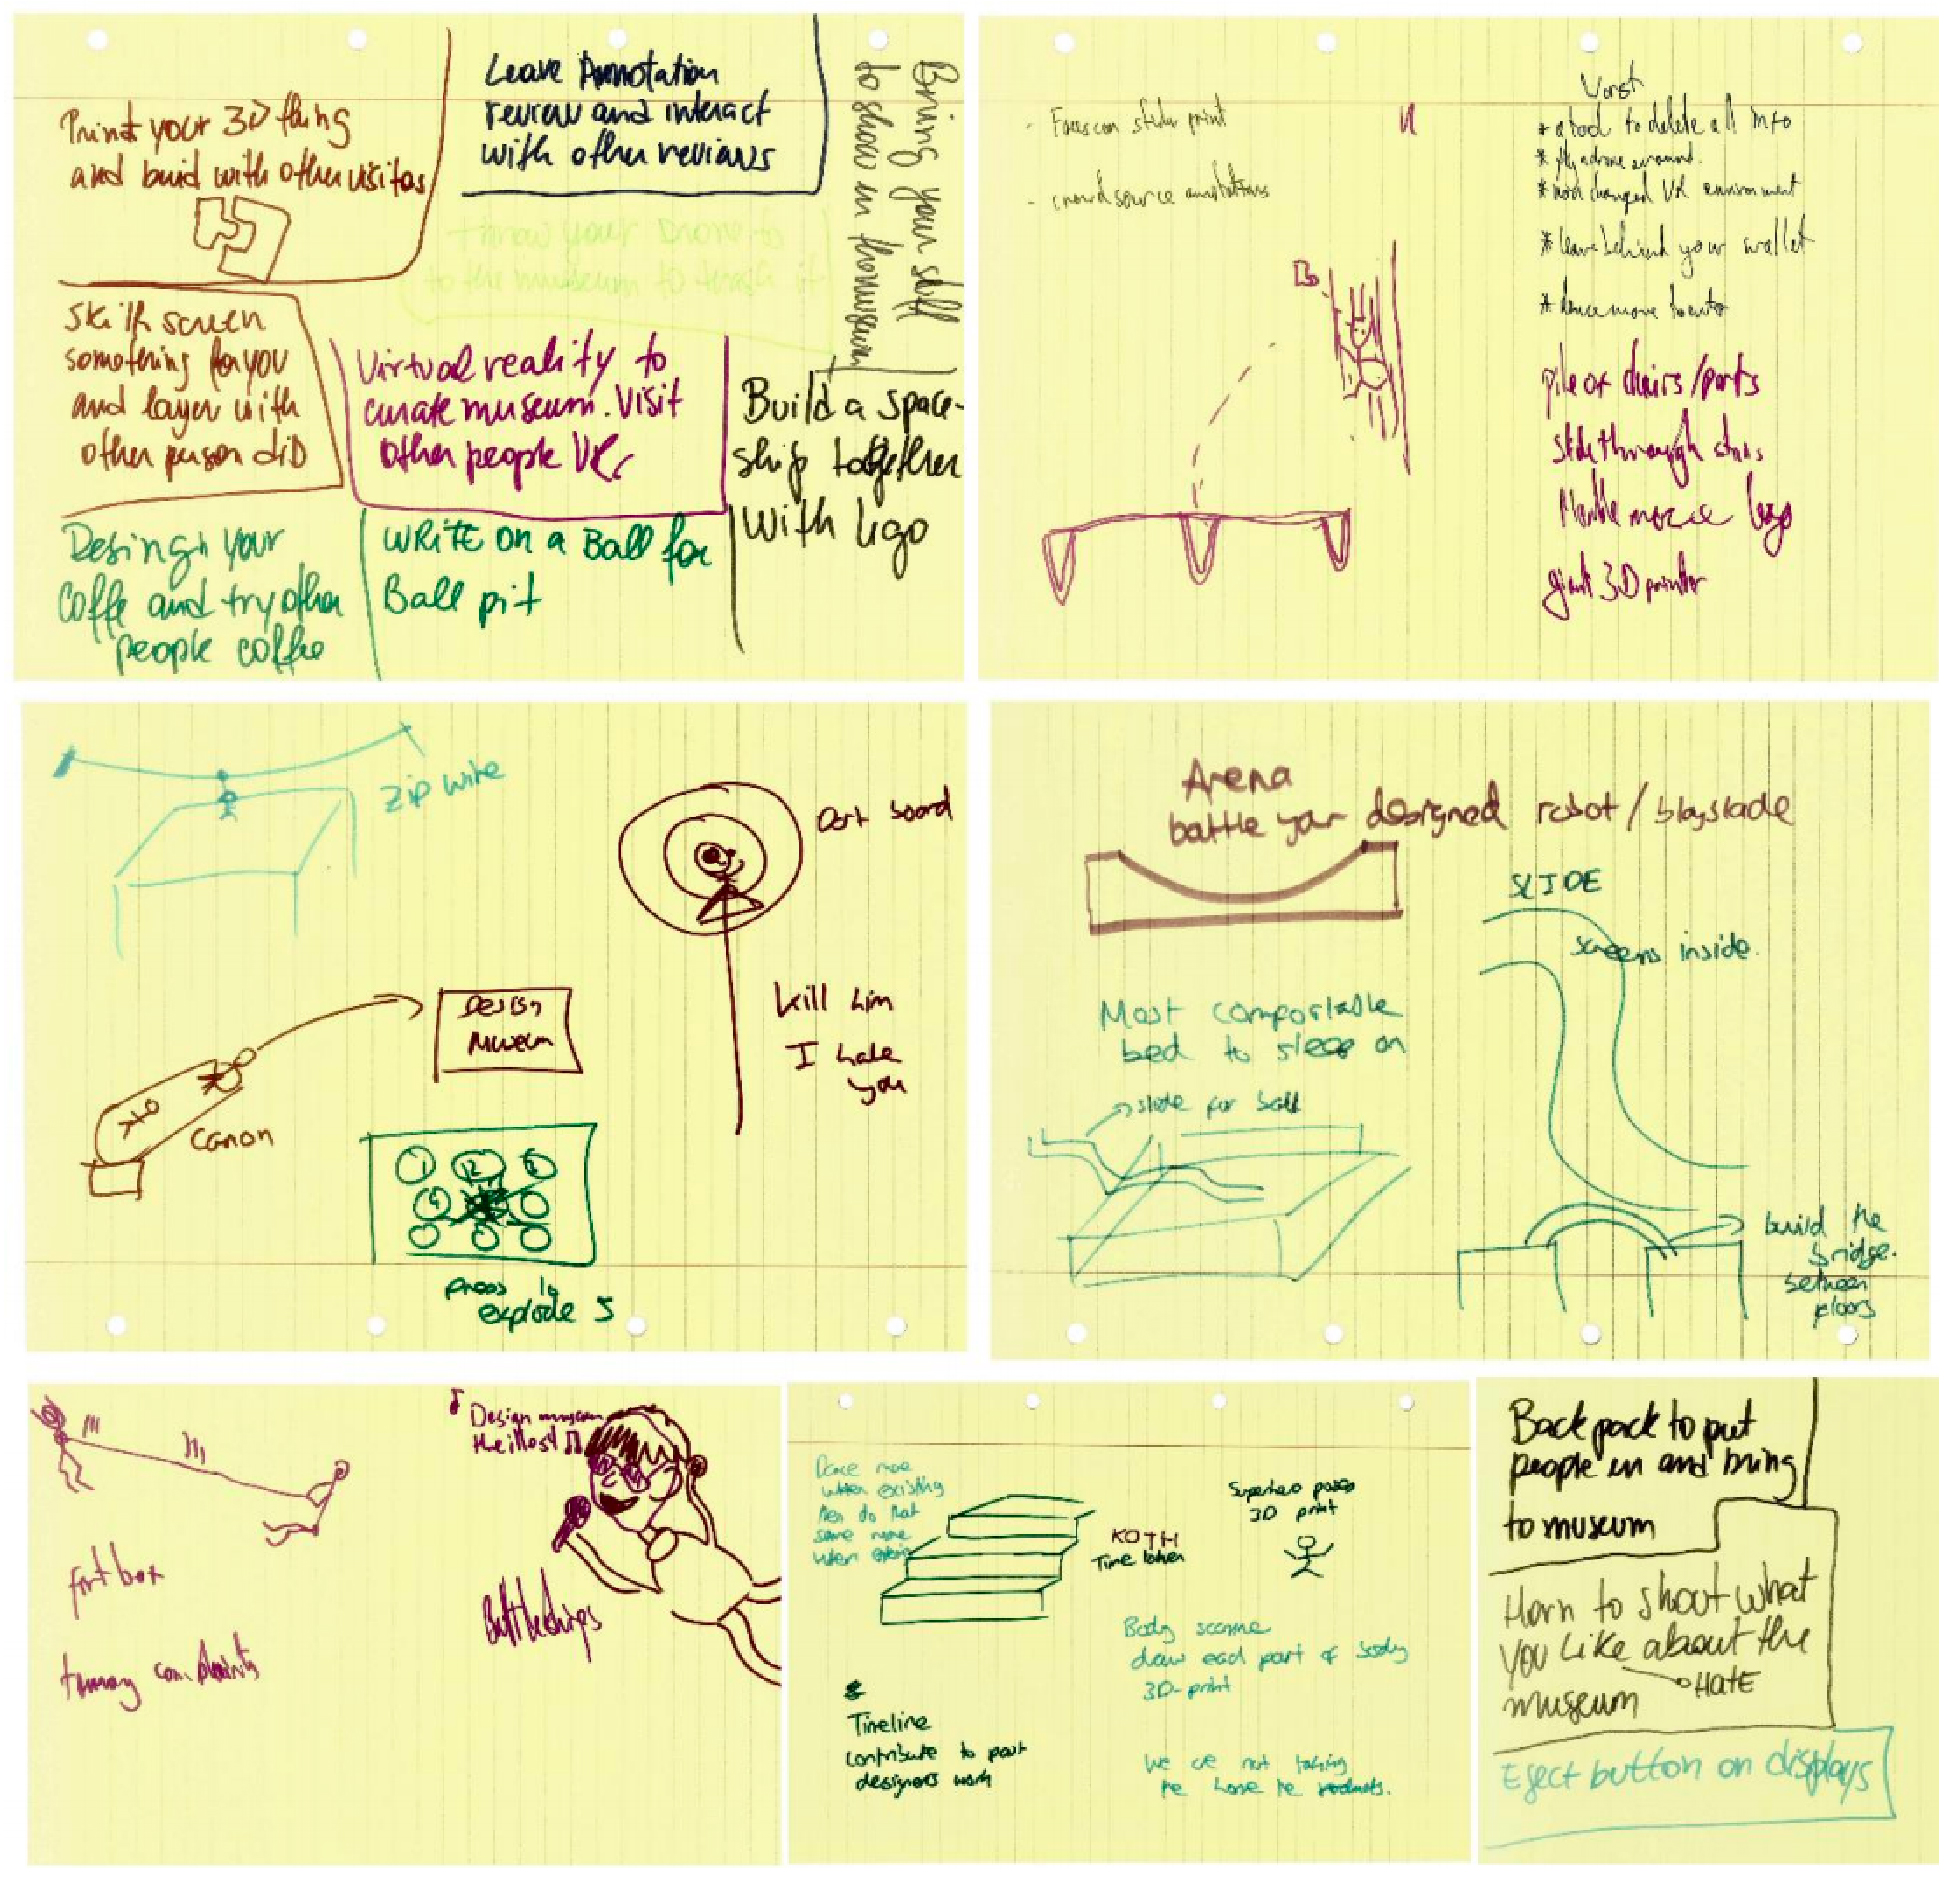 Print your 3D thing
and buid with other visitos
Leave Annotation
review and interact
with other reviews
Bring your stuff
to show in
throw your Drone
to the museum to
something for you
and layer with
other person did
Virtual reality to
curate museum. Visit
other people VR
Build a space-
ship together
with ligo
your
coffe and try other
people coffee
Write on a Ball for
Ball pit
print
- crowdsource annotations
Worst
* a tool to delete all info
* fly a drone around.
VR environment
* leave behind your wallet
* dance move to enter
pile of chairs/parts
slide through
giant 3D printer
Zip wire
Dart board
Design
Museum
Canon
kill him
I hate
you
1
12
press
explode 5
Arena
battle your designed robot / blayblade
SLIDE
screens inside.
Most comfortable
bed to sleep on
slide for ball
build the
bridge.
between
floors
Design museum
the illest
Battleships
same move
KOTH
Time taken
Superhero poses
3D print
Body
draw each part of body
3D-print
Timeline
contribute to past
designers work
We are not taking
the
Back pack to put
people in and bring
to museum
Horn to shout what
you like about the
HATE
museum
Eject button on displays